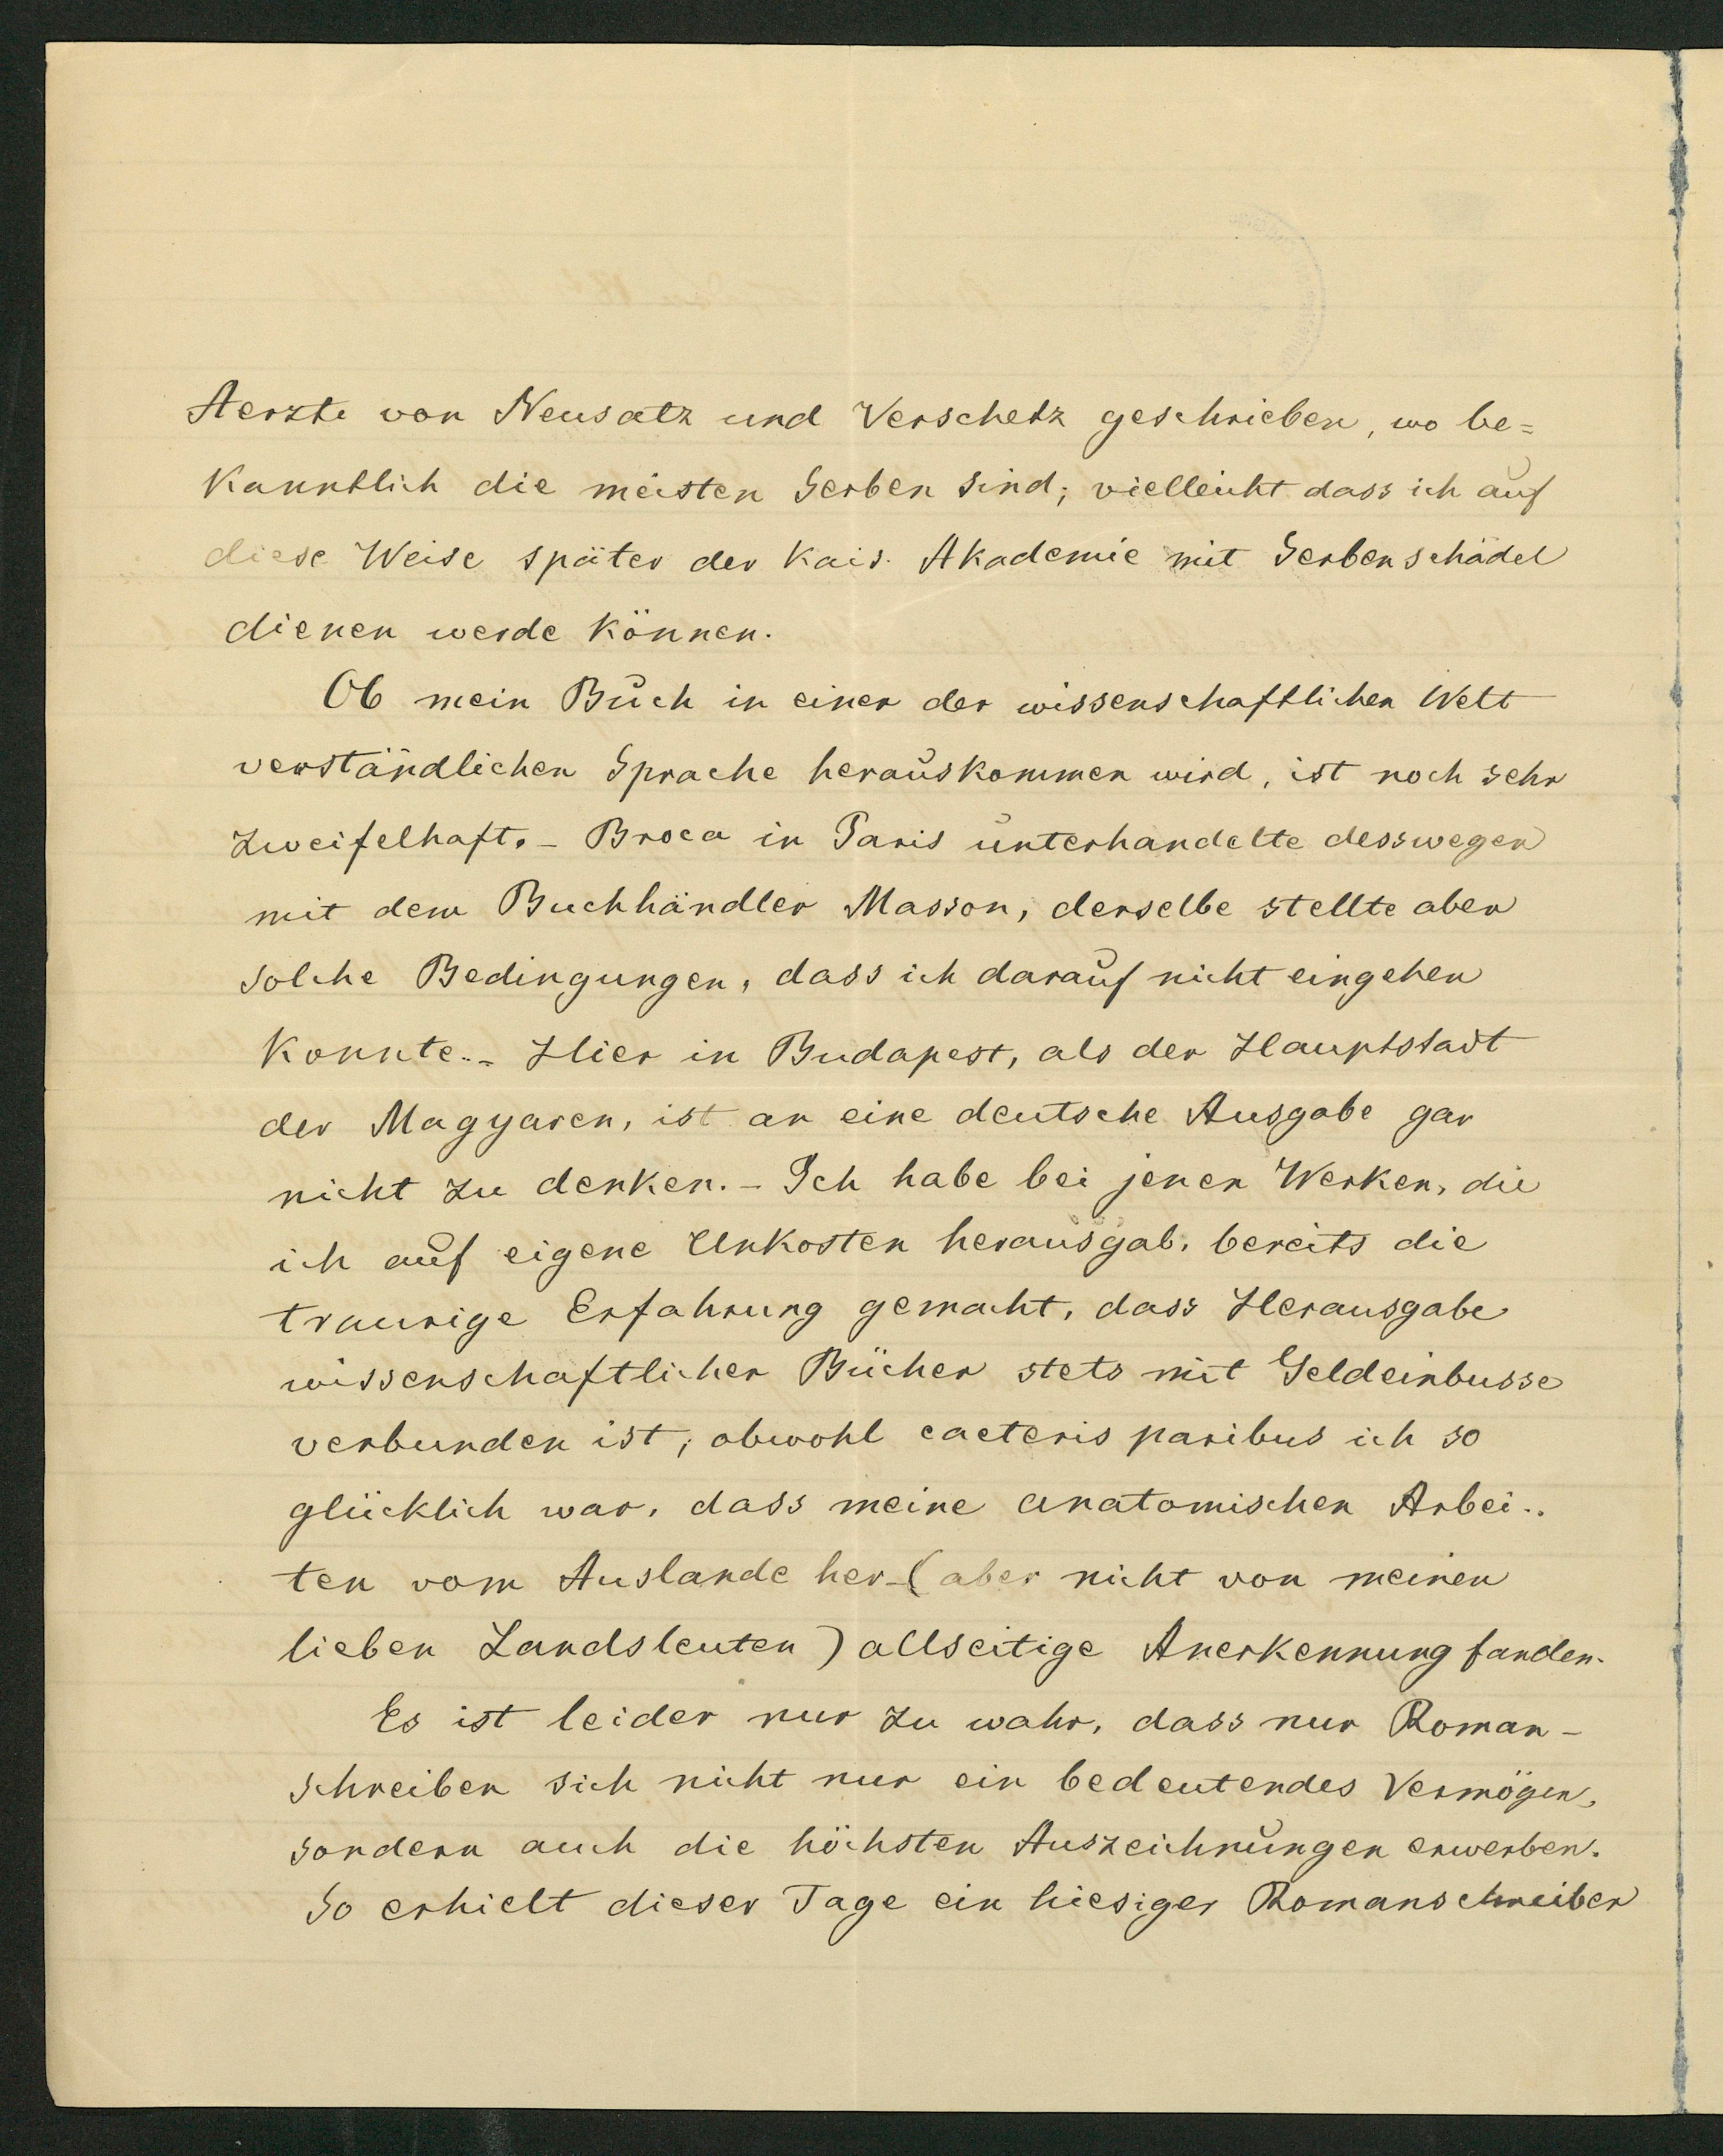 Aerzte von Neusatz und Verschetz geschrieben, wo be=
kanntlich die meisten Serben sind; vielleicht dass ich auf
diese Weise später der Kais. Akademie mit Serbenschädel
dienen werde können.
Ob mein Buch in einer der wissenschaftlichen Welt
verständlichen Sprache herauskommen wird, ist noch sehr
zweifelhaft. – Broca in Paris unterhandelte desswegen
mit dem Buchhändler Masson, derselbe stellte aber
solche Bedingungen, dass ich darauf nicht eingehen
konnte. – Hier in Budapest, als der Hauptstadt
der Magyaren, ist an eine deutsche Ausgabe gar
nicht zu denken. – Ich habe bei jenen Werken, die
ich auf eigene Unkosten herausgab, bereits die
traurige Erfahrung gemacht, dass Herausgabe
wissenschaftlicher Bücher stets mit Geldeinbusse
verbunden ist; obwohl caeteris paribus ich so
glücklich war, dass meine anatomischen Arbei-
ten vom Auslande her – (aber nicht von meinen
lieben Landsleuten) allseitige Anerkennung fanden.
Es ist leider nur zu wahr, dass nur Roman-
schreiber sich nicht nur ein bedeutendes Vermögen,
sondern auch die höchsten Auszeichnungen erwerben.
So erhielt dieser Tage ein hiesiger Romanschreiber